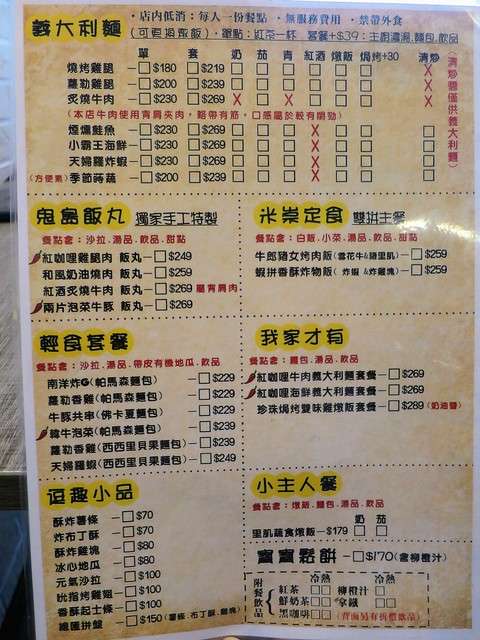 義大利麵
・店內低消：每人一份餐點 ・無服務費用 ・禁帶外食
(可更換燉飯)・單點：紅茶一杯 套餐+$39：主廚濃湯.麵包.飲品
單 套 奶 茄 青 紅酒 燉飯 焗烤+30 清炒
燒烤雞腿 $180 $219 X
蘿勒香雞 $200 $239 X
炙燒牛肉 $230 $269 X X X
(本店牛肉使用肩胛肉，略帶有筋，口感屬於較有嚼勁)
煙燻鮭魚 $230 $269 X
小霸王海鮮 $230 $269 X
天婦羅炸蝦 $230 $269 X
(方便素)季節蒔蔬 $200 $239 X
(清炒醬僅供義大利麵)
鬼島飯丸 獨家手工特製
餐點含：沙拉.湯品.飲品.甜點
紅咖哩雞腿肉 飯丸 $249
和風奶油燒肉 飯丸 $259
紅酒炙燒牛肉 飯丸 $269 屬肩胛肉
兩片泡菜牛豚 飯丸 $269
米崇定食 雙拼主餐
餐點含：白飯.小菜.湯品.飲品.甜點
牛郎豬女烤肉飯(雪花牛&豬里肌) $259
蝦拼香酥炸物飯( 炸蝦 &炸雞塊) $259
輕食套餐
餐點含：沙拉.湯品.帶皮有機地瓜.飲品
南洋炸G(帕馬森麵包) $229
蘿勒香雞(帕馬森麵包) $229
牛豚共串(佛卡夏麵包) $229
韓牛泡菜(帕馬森麵包) $239
蘿勒香雞(西西里貝果麵包) $239
天婦羅蝦(西西里貝果麵包) $249
我家才有
餐點含：麵包.湯品.飲品
紅咖哩牛肉義大利麵套餐 $269
紅咖哩海鮮義大利麵套餐 $269
珍珠焗烤雙味雞燉飯套餐 $289 (奶油醬)
逗趣小品
酥炸薯條 $70
炸布丁酥 $70
酥炸雞塊 $80
冰心地瓜 $80
元氣沙拉 $100
比指烤雞翅 $100
香酥起士條 $100
總匯拼盤 $150(薯條.布丁酥.雞塊)
小主人餐
餐點含：燉飯.麵包.湯品.飲品
奶 茄
里肌蔬食燉飯 $179
寶寶鬆餅 $170(含柳橙汁)
附餐飲品
冷 熱 冷 熱
紅茶 柳橙汁
鮮奶茶 拿鐵
黑咖啡 (背面另有折價飲品)